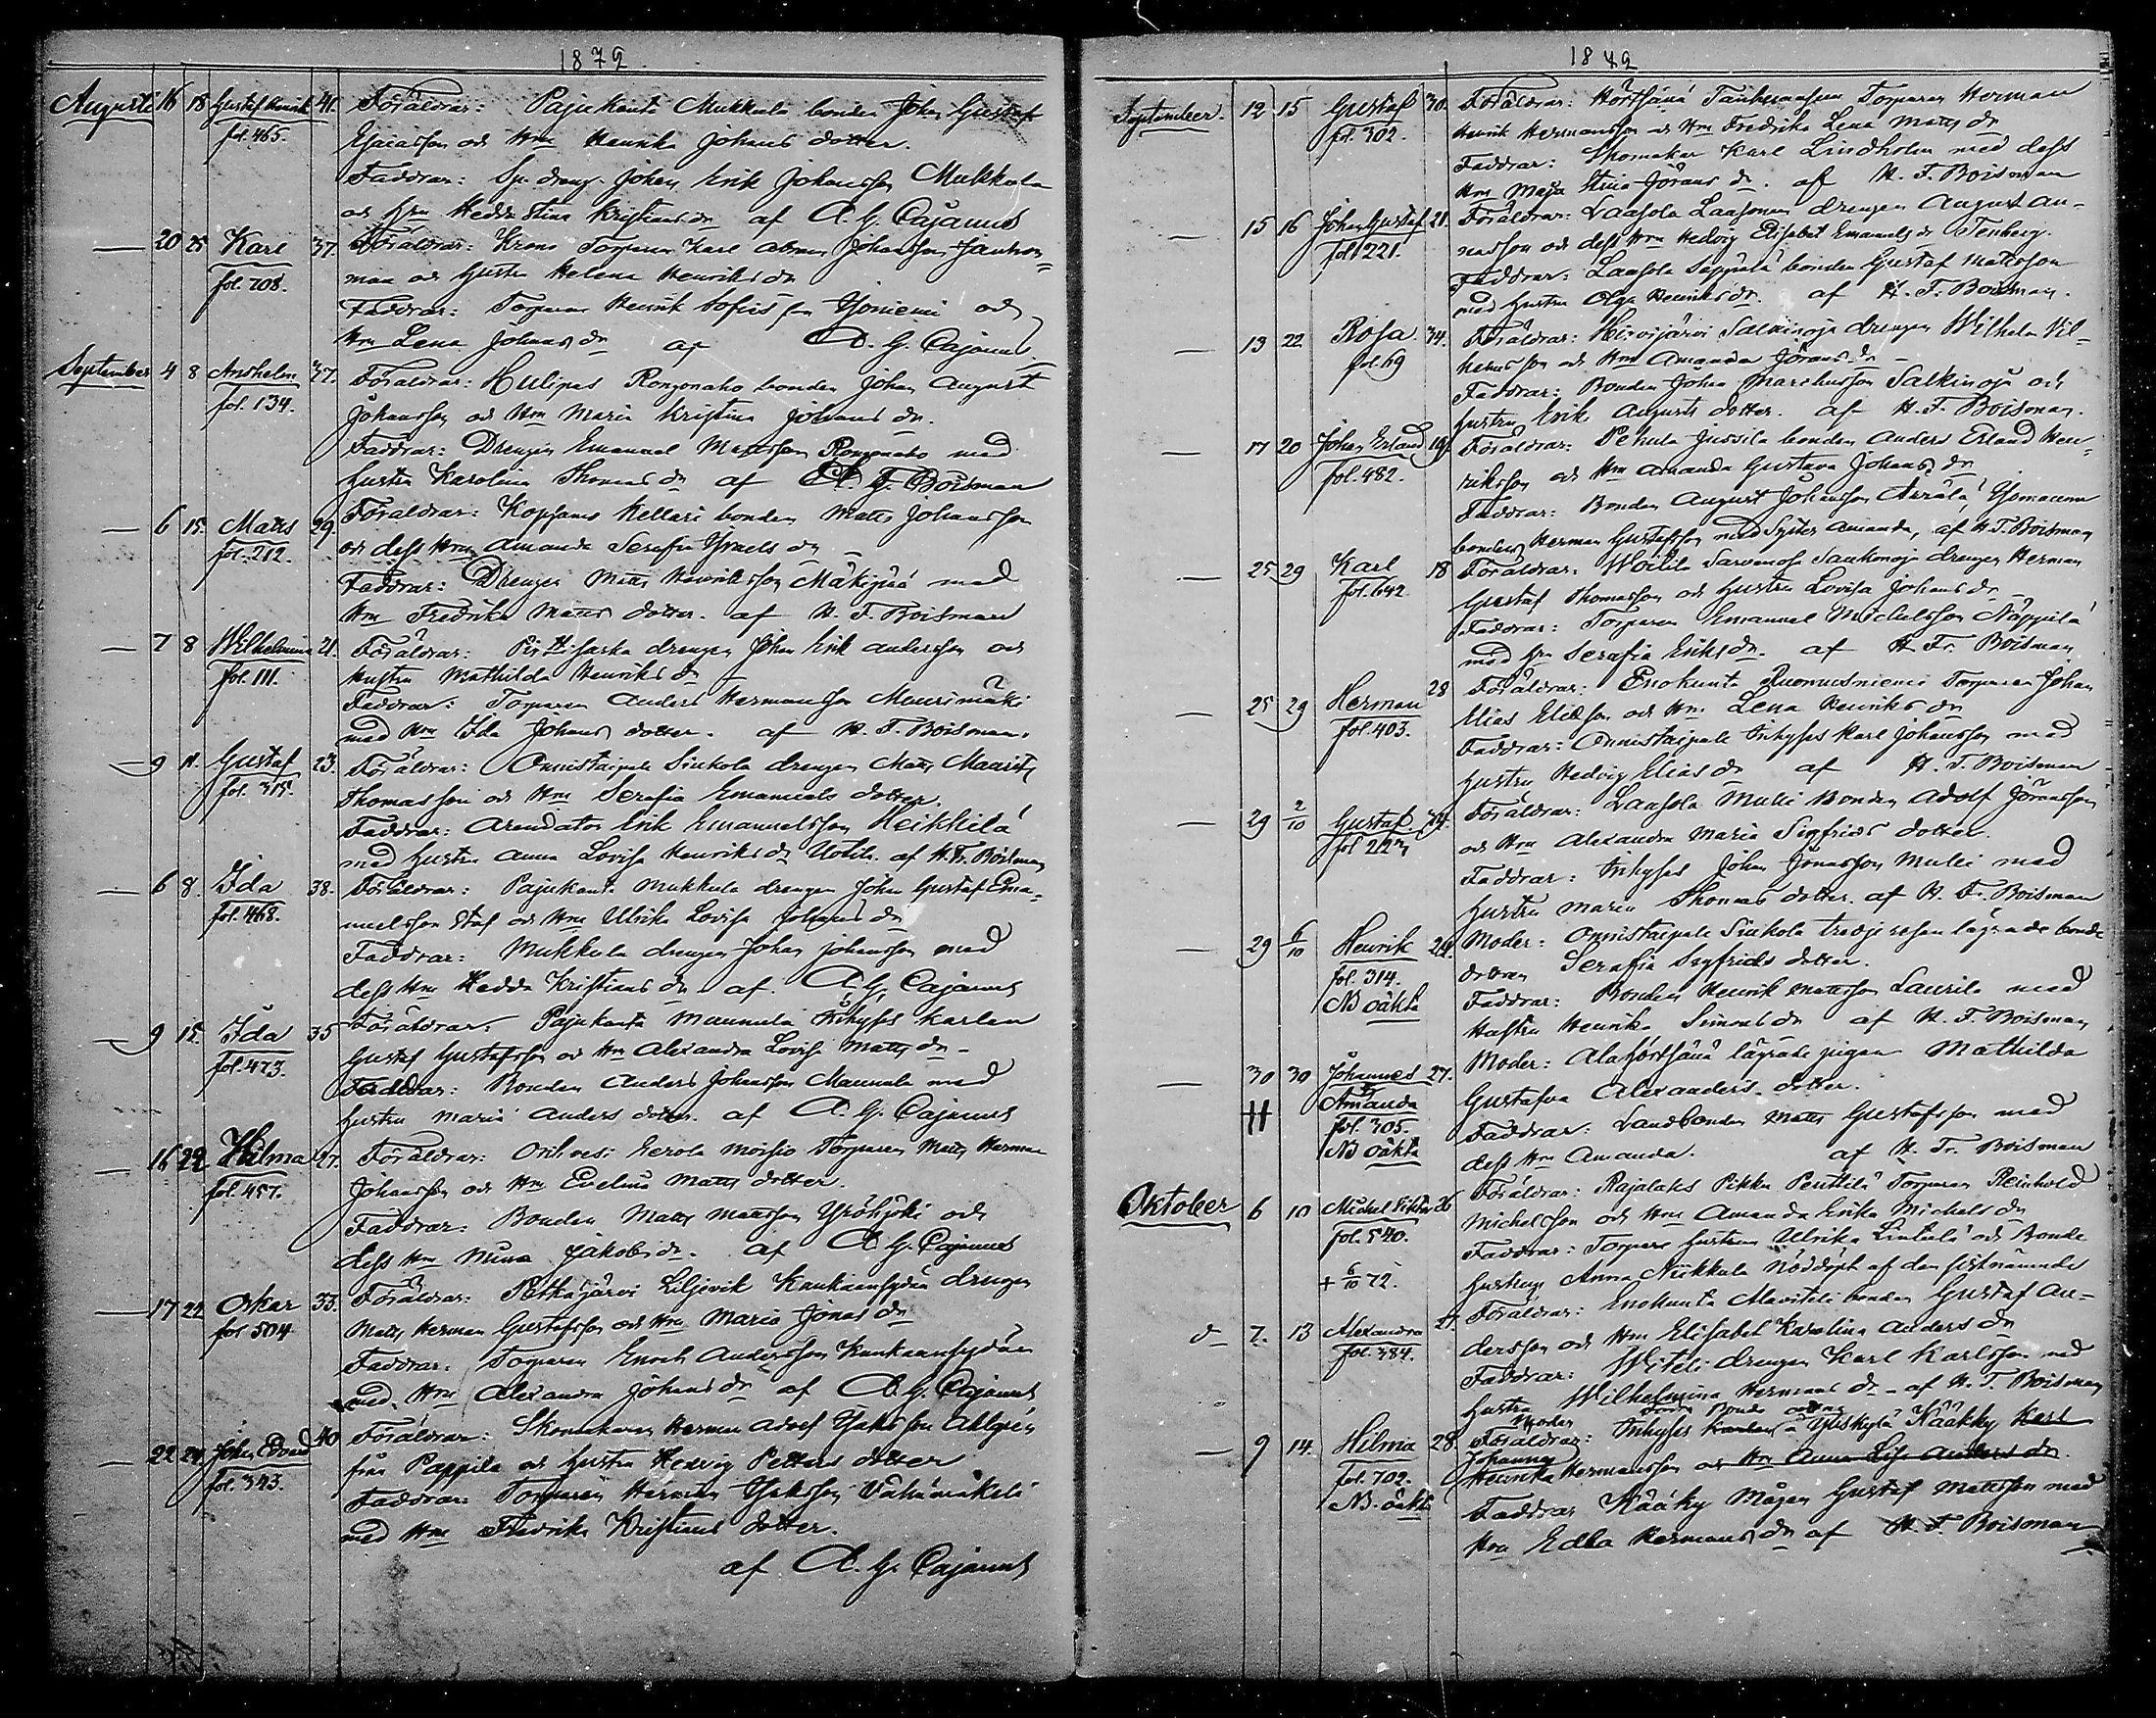 1872
Augusti 16 18 Gustaf Henrik 41. Föräldrar: Pajukanta Mukkula bonden Johan Gustaf
fol. 465. Esaiasson och Hru Henrika Johans dotter.
Faddrar: Sp. dreng. Johan Erik Johansson Mukkula
och Hru Hedda Stina Kristians dr af A. G. Cajanus
— 20 25 Karl 37. Föräldrar: Krono Torparen Karl Johansson
fol. 708. och hustru Helena Henriks dr
Faddrar: Torparen Henrik Yoniemi och
Hru Lena Johans dr af A. G. Cajanus
September 4 8 Anshelm 27. Föräldrar: Hulipas Rongonaho bonden Johan August
fol. 134. Johansson och Hru Maria Kristina Johans dr.
Faddrar: Drengen Emanuel Mattsson Rongonaho med
hustru Karolina Thomas dr af H. F. Boisman
— 6 15. Matts 29. Föräldrar: Kopsamo Kellari bonden Matts Johansson
fol. 212. och dess Hru Amanda Serafia Israels dr
Faddrar: Drengen Matts Henriksson Mäkipää med
Hru Fredrika Matts dotter. af H. F. Boisman
— 7 8 Wilhelmina 21. Föräldrar: drengen Johan Erik Andersson och
fol. 111. hustru Mathilda Henriks dr
Faddrar: Torparen Anders Hermansson Muurimäki
med Hru Ida Johans dotter. af H. F. Boisman.
— 9 11. Gustaf 23. Föräldrar: Onnistaipale Siukola drengen Matts Maurits
fol. 315. Thomasson och Hru Serafia Emanuels dotter.
Faddrar: Arendator Erik Emanuelsson Heikkilä
med hustru Anna Lovisa Henriks dr Uotila. af H. F. Boisman
— 6 8. Ida 38. Föräldrar: Pajukanta Mukkula drengen Johan Gustaf Ema-
fol. 468. nuelsson Staf och Hru Ulrika Lovisa Johans dr
Faddrar: Mukkula drengen Johan Johansson med
dess Hru Hedda Kristians dr af. A. G. Cajanus
— 9 15. Ida 35 Föräldrar: Pajukanta Mannula Inhyses karlen
fol. 473. Gustaf Gustafsson och Hru Alexandra Lovisa Matts dr
Faddrar: Bonden Anders Johansson Mannula med
hustru Maria Anders dotter. af A. G. Cajanus
— 16 22 Hilma 27. Föräldrar: Orihvesi Eerola Moisio Torparen Matts Herman
fol. 457. Johansson och Hru Evelina Matts dotter.
Faddrar: Bonden Matts Mattsson Yröhjoki och
dess Hru Mina Jakobs dr. af A. G. Cajanus
— 17 22 Oskar 33. Föräldrar: Petkajärvi Liljevik Kankaansydän drengen
fol 504 Matts Herman Gustafsson och Hru Maria Jonas dr
Faddrar: Torparen Enoch Andersson Kankaansydän
med. Hru Alexandra Johans dr af A. G. Cajanus
— 22 24 Johan Edvard 40 Föräldrar: Skomakaren Herman Adolf Isaksson Ahlgrén
fol. 343. från Pappila och hustru Hedvig Petters dotter
Faddrar: Torparen Herman Isaksson Vähämäkelä
med Hru Fredrika Kristians dotter.
af A. G. Cajanus
1872
September. 12 15 Gustaf 30. Föräldrar: Hörtsänä Torparen Herman
fol. 302. Henrik Hermansson och Hru Fredrika Lena Matts dr
Faddrar: Skomakar Karl Lindholm med dess
Hru Maja Stina Jörans dr. af H. F. Boisman
— 15 16 Johan Gustaf 21. Föräldrar: Laasola Laasonen drengen August An-
fol 221. och dess Hru Hedvig Elisabet Emanuels dr Tenberg.
Faddrar: Laasola Seppälä bonden Gustaf Mattsson
med hustru Olga Henriks dr. af H. F. Boisman.
— 13 22 Rosa 34. Föräldrar: Hirvijärvi Salkinoja drengen Wilhelm Vil-
fol. 69 helmsson och Hru Amanda Jörans dr
Faddrar: Bonden Johan Salkinoja och
hustru Erika Augusts dotter. af H. F. Boisman.
— 17 20 Johan Erland 19. Föräldrar: Pehula Jussila bonden Anders Erland Hen-
fol. 482. riksson och Hru Amanda Gustava Johans dr
Faddrar: Bonden August Johansson Anrala,
bonden Herman Gustafsson med Syster Amanda, af H. F. Boisman
— 25 29 Karl 18 Föräldrar. Sankonoja drengen Herman
fol. 642. Gustaf Thomasson och hustru Lovisa Johans dr
Faddrar: Torparen Emanuel Michelsson Näppilä
med Hru Serafia Eriks dr. af H. F. Boisman
— 25 29 Herman 28 Föräldrar: Enokunta Ruomusniemi Torparen Johan
fol. 403. Elias Eliasson och Hru. Lena Henriks dr
Faddrar: Onnistaipale Inhyses Karl Johansson med
hustru Hedvig Elias dr af H. F. Boisman
— 29 2/10 Gustaf. 34. Föräldrar: Laasola Muli Bonden Adolf Jöransson
fol 227 och Hru Alexandra Maria Sigfrids dotter.
Faddrar: Inhyses Johan Jonasson Muli med
hustru Maria Thomas dotter. af H. F. Boisman
— 29 6/10 Henrik 24. Moder: Onnistaipale Siukola tredje resan lägrade bonde
fol. 314. dottren Serafia Sigfrids dotter.
NB oäkta Faddrar: Bonden Henrik Mattsson Laurila med
Hustru Henrika Simons dr af H. F. Boisman
— 30 30 Johannes 27. Moder: Alahörtsänä lägrade pigan Mathilda
Amanda Gustafva Alexanders dotter.
fol. 305. Faddrar: Landbonden Matts Gustafsson med
NB oäkta dess Hru Amanda. af H. F. Boisman
Oktober 6 10 Michel Viktor 26 Föräldrar: Rajalaks Pikku Penttilä Torparen Reinhold
fol. 540. Michelsson och Hru Amanda Erika Michels dr
Faddrar: Torpare hustrun Ulrika Lintula och Bonde
+ 6/10 72. hustrun Anna Niikkula nöddöpt af den sistnämnde
d— 7. 13 Alexandra 27. Föräldrar: Enokunta Mavitali bonden Gustaf An-
fol. 384. dersson och Hru Elisabet Karolina Anders dr
Faddrar: Witeli drengen Karl Karlsson med
hustru Wilhelmina Hermans dr af H. F. Boisman
Moder Bonde
— 9 14. Hilma 28. Föräldrar: Inhyses karlen Yliskylä Kääkky Karl
Johanna
fol. 702. Henrika Hermansson och Hru Anna Lisa Anders dr.
NB. oäkta Faddrar Kääky Mågen Gustaf Mattsson med
Hru Edla Hermans dr af H. F. Boisman